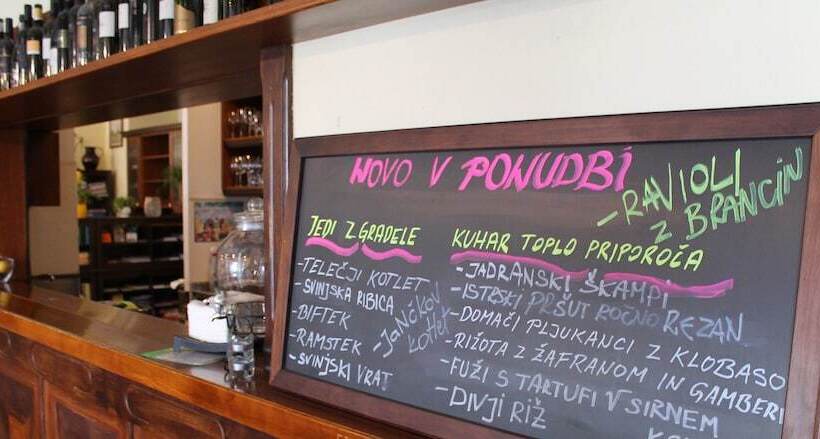 NOVO V PONUDBI
-RAVIOLI
Z BRANCIN
JEDI Z GRADELE
-TELEČJI KOTLET
-SVINJSKA RIBICA
-BIFTEK
-RAMSTEK
-SVINJSKI VRAT
-JANČKOV
KOTLET
KUHAR TOPLO PRIPOROČA
-JADRANSKI ŠKAMPI
-ISTRSKI PRŠUT ROČNO REZAN
-DOMAČI PLJUKANCI Z KLOBASO
-RIŽOTA Z ŽAFRANOM IN GAMBERI
-FUŽI S TARTUFI V SIRNEM
-DIVJI RIŽ